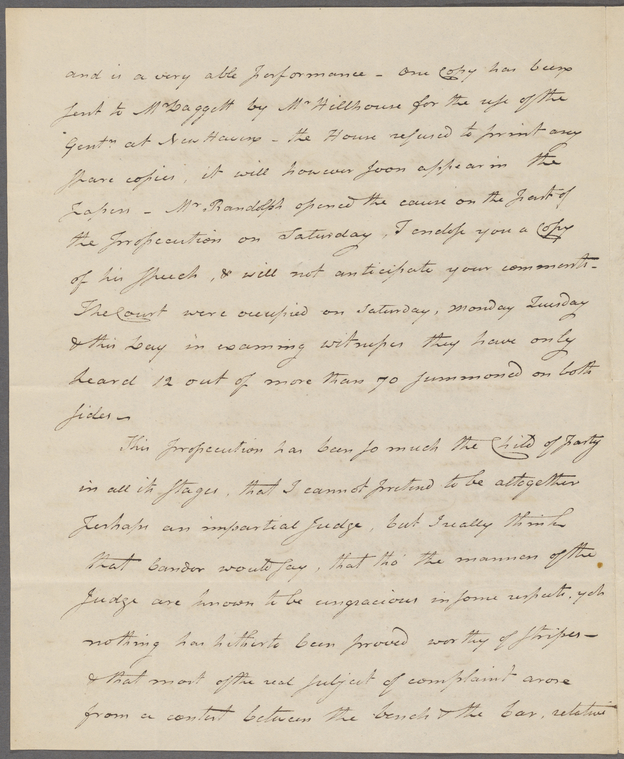 and is a very able performance – one Copy has been
sent to Mr Daggett by Mr Hillhouse for the use of the
Gentn at New Haven – the House refused to print any
spare copies, it will however soon appear in the
papers – Mr Randolph opened the cause on the part of
the prosecution on Saturday, I enclose you a Copy
of his speech, & will not anticipate your comments –
The Court were occupied on Saturday, Monday Tuesday
& this Day in examing witnesses they have only
heard 12 out of more than 70 summoned on both
sides –
This prosecution has been so much the Child of party
in all its stages, that I cannot pretend to be altogether
perhaps an impartial Judge, but I really think
that Candor would say, that tho' the manners of the
Judge are known to be ungracious in some respects, yet
nothing has hitherto been proved worthy of stripes –
& that most of the real subject of complaint arose
from a contest between the bench & the bar, relative